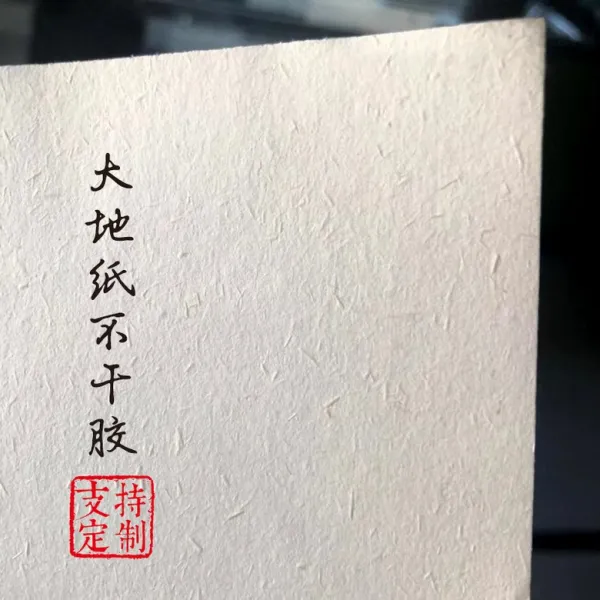 大地纸不干胶
支持
定制